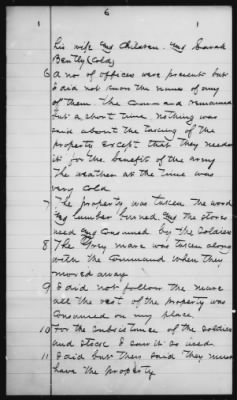 6
1 1
his wife and children. and Sarah
Bently (Cold)
6 A no of officers were present but
I did not know the names of any
of them. The Command remained
but a short time. Nothing was
said about the taking of the
property except that they needed
it for the benefit of the army
The weather at the time was
very cold
7 The property was taken the wood
and lumber burned. and the stove
used and consumed by the soldiers
8 The Grey mare was taken along
with the Command when they
moved away
9 I did not follow the mare
all the rest of the property was
consumed on my place.
10 For the subsistance of the soldiers
and stock I saw it so used
11 I did but they said they must
have the property